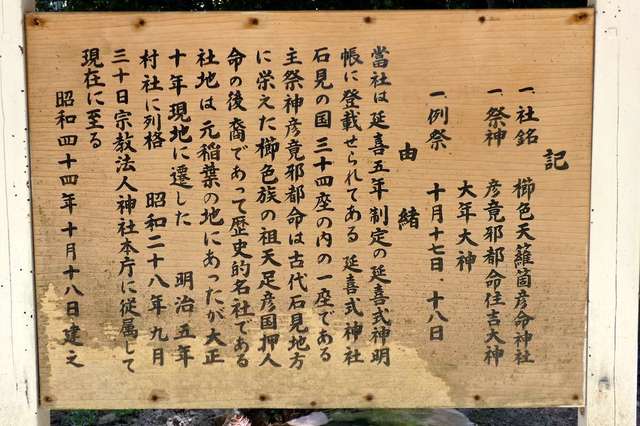 記
一、社銘 櫛色天蘿箇彦命神社
一、祭神 彦竟邪都命住吉大神
大年大神
一、例祭 十月十七日、十八日
由緒
當社は延喜五年制定の延喜式神明
帳に登載せられてある延喜式神社
石見の国三十四座の内の一座である
主祭神彦竟邪都命は古代石見地方
に栄えた櫛色族の祖天足彦国押人
命の後裔であって歴史的名社である
社地は元稲葉の地にあったが大正
十年現地に遷した 明治五年
村社に列格 昭和二十八年九月
三十日宗教法人神社本庁に従属して
現在に至る
昭和四十四年十月十八日建之